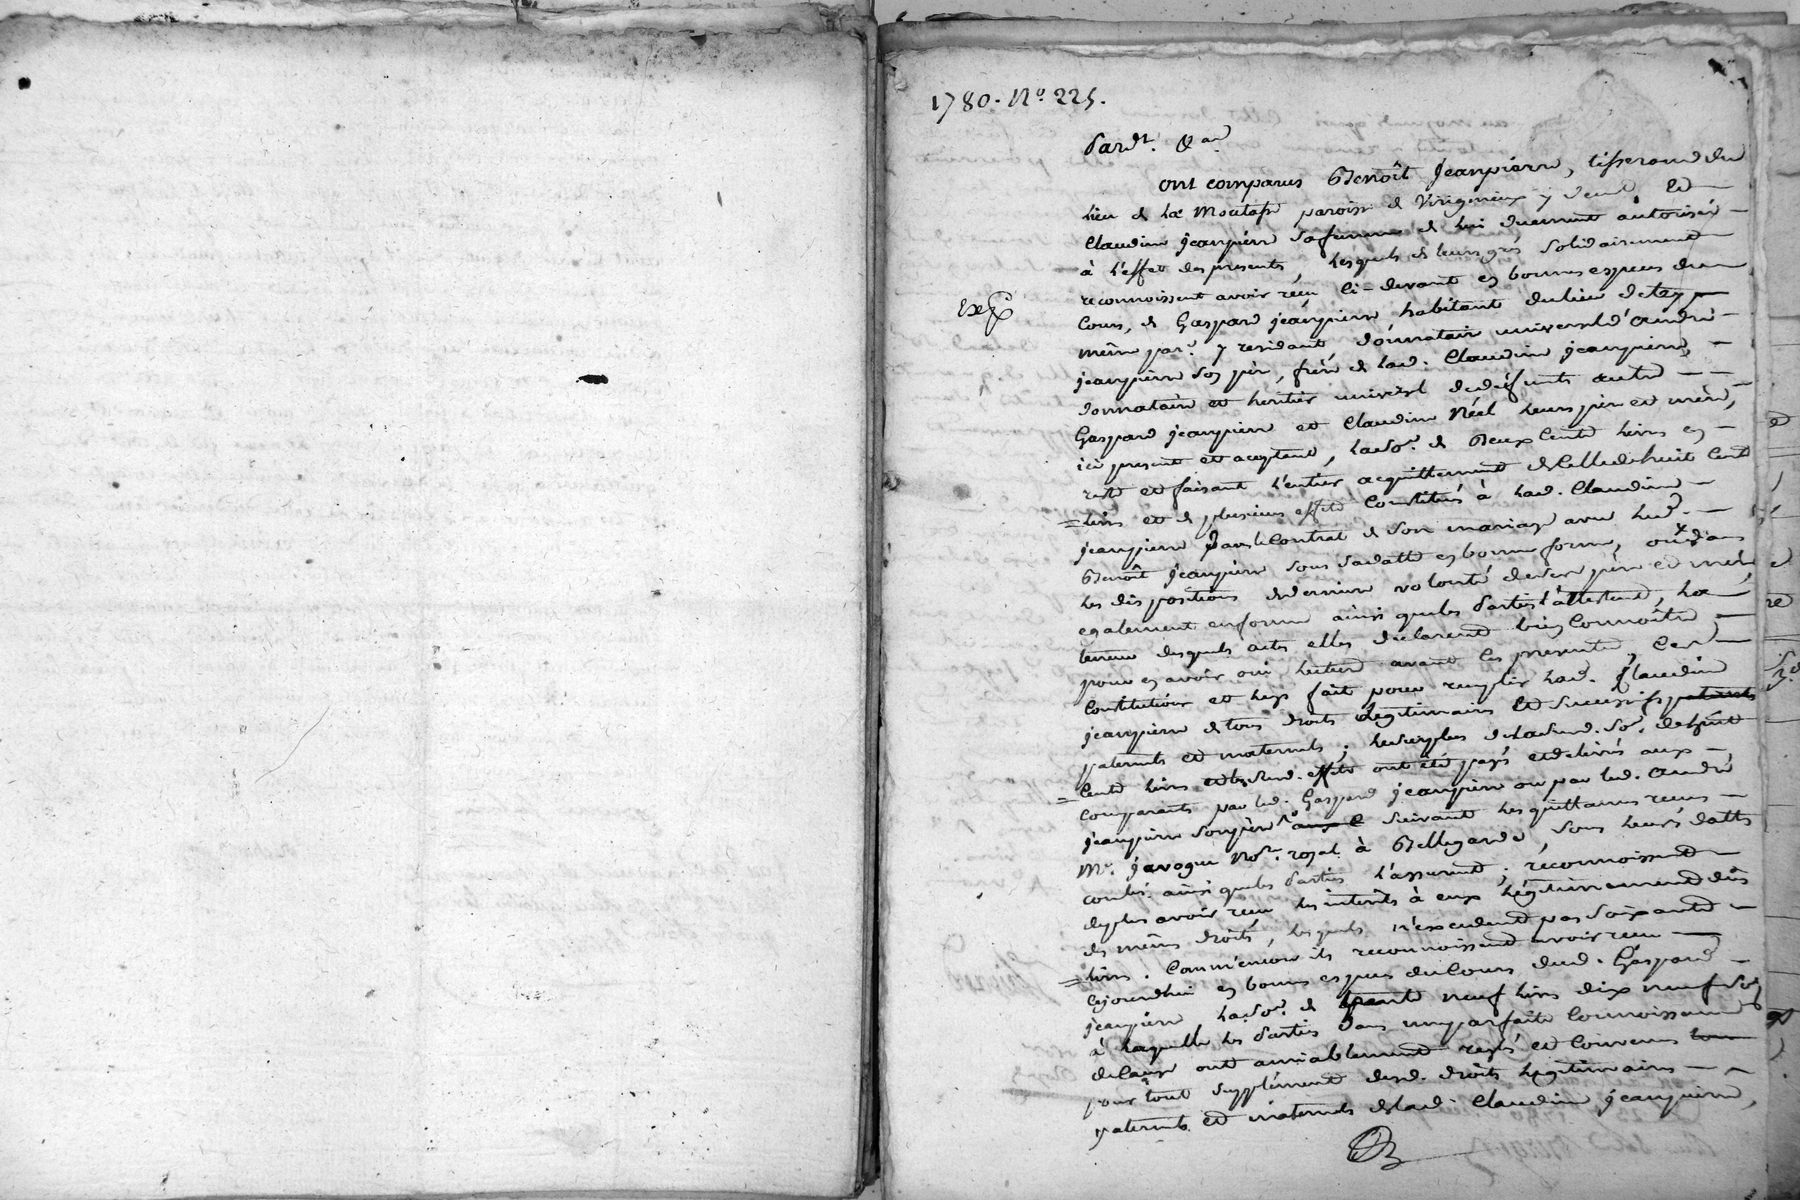 1780. No. 225.
Pardt. &ar.
ont comparus Benoît Jeanpierre, tisserand du
lieu de la Moutasse paroisse de Virigneux y demt. et
Claudine jeanpierre sa femme de lui duement autorisée
à l'effet des presentes, lesquels de leurs grés solidairement
reconnoissent avoir reçu ci-devant en bonnes especes du
Exp.
Cours, de Gaspard jeanpierre habitant du lieu de
même par. y residant donnataire universel d'andré
jeanpierre son père, frère de lad. Claudine jeanpierre,
donnataire et heritier universel de defunts autre
Gaspard jeanpierre et Claudine Néel leurs père et mère,
ici present et aceptant, la so. de Deux Cents livres en
reste et faisant l'entier acquittement de Celle de huit Cent
=livres et de plusieurs effets Constitués à lad. Claudine
jeanpierre dans le Contrat de son mariage avec led.
Benoît jeanpierre sous sa datte en bonne forme, ou dans
les dispositions de derniere volonté de ses père et mère
egalement en forme ainsi que les parties l'attestent, la
teneur desquels actes elles declarent bien Connoître
pour en avoir oui lecture avant ces presentes, Ces
Constitutions et legs fait pour remplir lad. Claudine
jeanpierre de tous droits légitimaires et successifs
paternels et maternels; le surplus de lad. so. de huit
=Cents livres et lesd. effets ont été payés et delivrés aux
comparants par led. Gaspard jeanpierre ou par led. andré
jeanpierre son père suivant les quittances reçues
Me. javogue Nore. royal à Bellegarde, sous leurs dattes
contes. ainsi que les parties l'assurent; reconnoissent
de plus avoir reçu les intérêts à eux légitimement dûs
des mêmes droits, lesquels n'excedent pas soixante
=livres. Comm'encore ils reconnoissent avoir reçu
cejourdhui en bonnes especes du Cours dud. Gaspard
jeanpierre la so. de trente neuf livres dix neuf sols
à laquelle les parties dans une parfaite Connoissance
de Cause ont amiablement reglés et convenus
pour tout supplément desd. droits légitimaires
paternels et maternels de lad. Claudine jeanpierre,